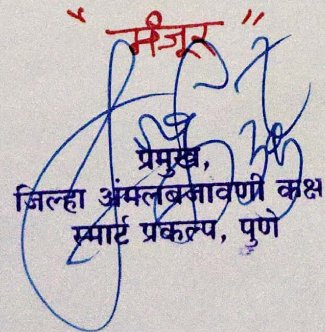 "मंजूर"
प्रमुख,
जिल्हा अंमलबजावणी कक्ष
स्मार्ट प्रकल्प, पुणे